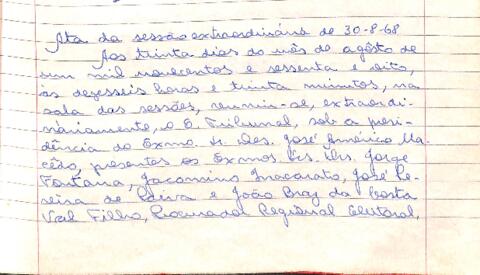 Ata da sessão extraordinária de 30-8-68
Aos trinta dias do mês de agôsto de
um mil novecentos e sessenta e oito,
às dezesseis horas e trinta minutos, na
sala das sessões, reuniu-se, extraordi-
nàriamente, o E. Tribunal, sob a presi-
dência do Exmo. Sr. Des. José Américo Ma-
cêdo, presentes os Exmos. Srs. Drs. Jorge
Fontana, Jacomino Inacarato, José Pe-
reira de Paiva e João Braz da Costa
Val Filho, Procurador Regional Eleitoral,